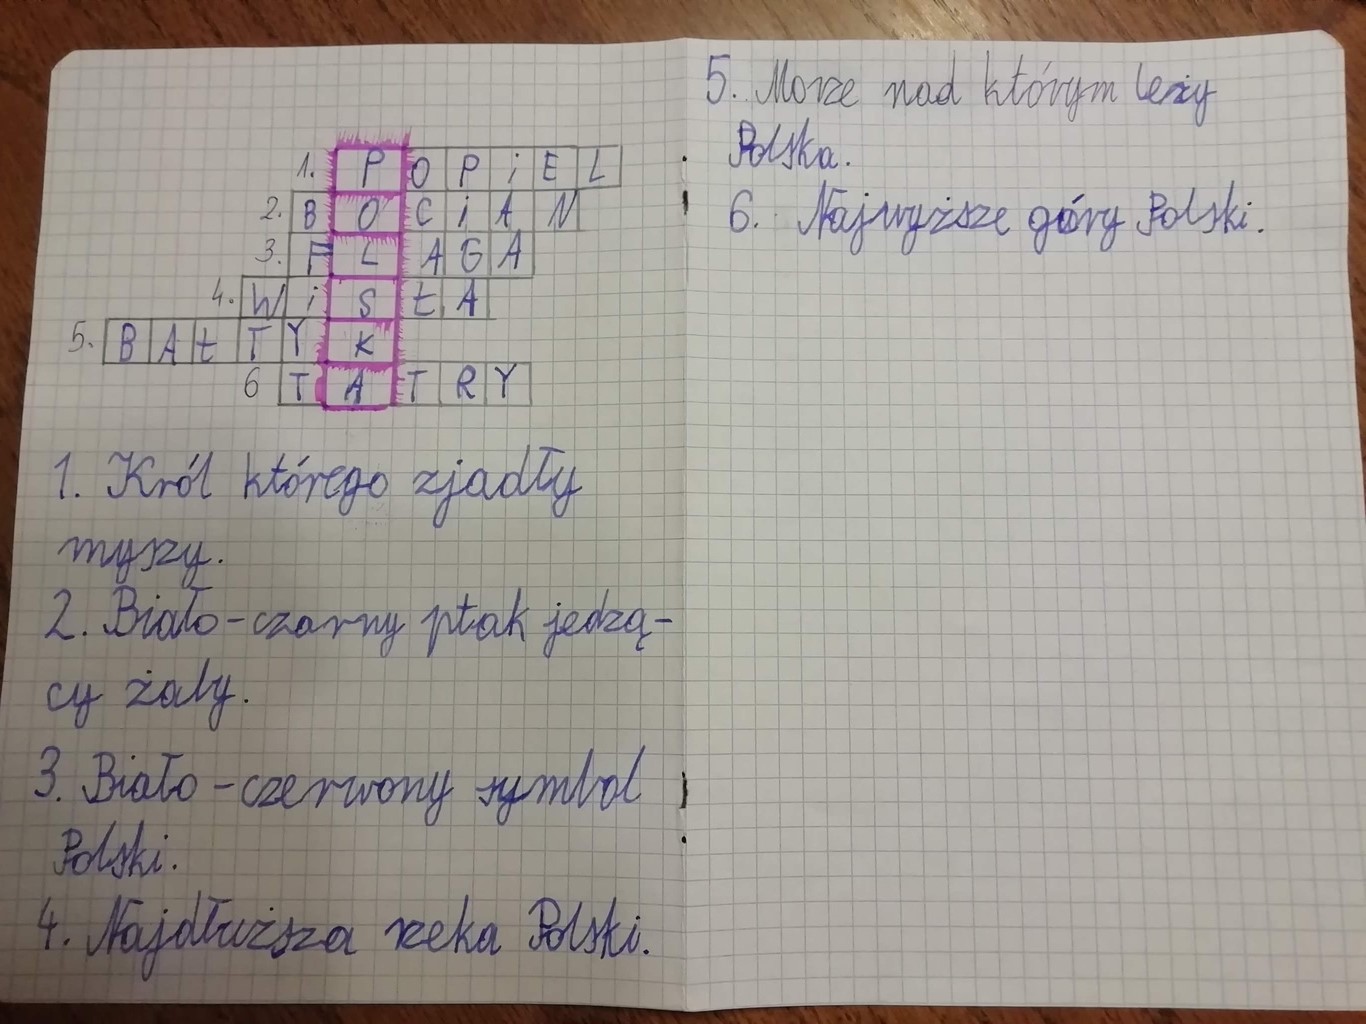 1. POPiEL
2. BOCiAN
3. FLAGA
4. WiSŁA
5. BAŁTYK
6 TATRY
1. Król którego zjadły
myszy.
2. Biało-czarny ptak jedzą-
cy żaby.
3. Biało-czerwony symbol
Polski.
4. Najdłuższa rzeka Polski.
5. Morze nad którym leży
Polska.
6. Najwyższe góry Polski.